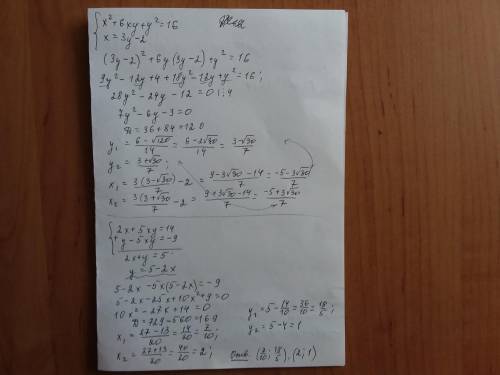 x²+6xy+y²=16
x=3y-2
(3y-2)²+6y(3y-2)+y²=16
9y²-12y+4+18y²-12y+y²=16;
28y²-24y-12=0 |:4
7y²-6y-3=0
D=36+84=120
y₁=(6-√120)/14=(6-2√30)/14=(3-√30)/7
y₂=(3+√30)/7;
x₁=3(3-√30)/7-2=(9-3√30-14)/7=(-5-3√30)/7
x₂=3(3+√30)/7-2=(9+3√30-14)/7=(-5+3√30)/7
2x+5xy=14
y-5xy=-9
2x+y=5
y=5-2x
5-2x-5x(5-2x)=-9
5-2x-25x+10x²+9=0
10x²-27x+14=0
D=729-560=169
x₁=(27-13)/20=14/20=7/10;
x₂=(27+13)/20=40/20=2;
y₁=5-14/10=36/10=18/5;
y₂=5-4=1
Отв. (7/10; 18/5), (2; 1)